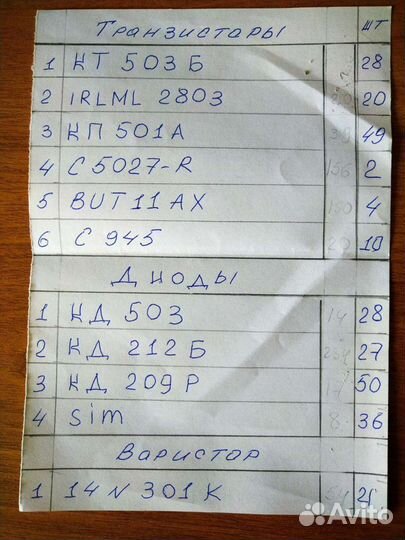 Транзистары шт
1 КТ 503 Б 28
2 IRLML 2803 20
3 КП 501А 49
4 C 5027-R 156 2
5 BUT 11 AX 4
6 C 945 20 10
Диоды
1 КД 503 14 28
2 КД 212 Б 27
3 КД 209 Р 17 50
4 Sim 8 36
Варистор
1 14 N 301 K
Avito